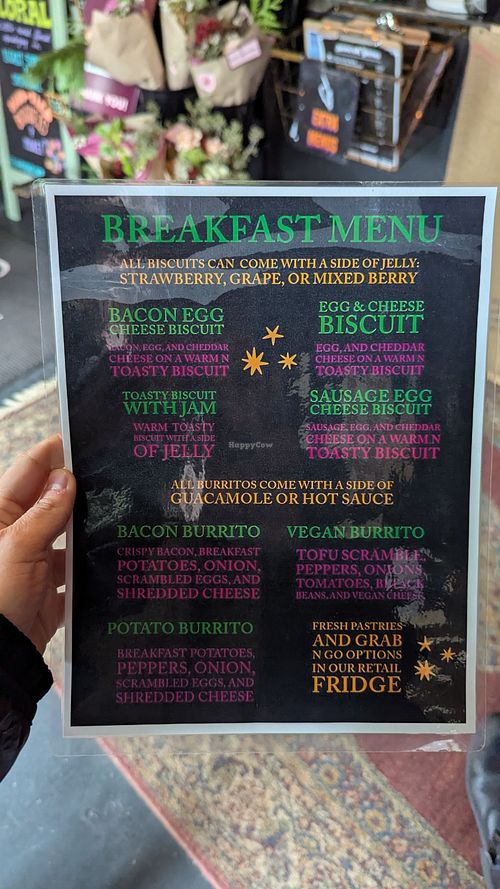 BREAKFAST MENU
ALL BISCUITS CAN COME WITH A SIDE OF JELLY:
STRAWBERRY, GRAPE, OR MIXED BERRY
BACON EGG
CHEESE BISCUIT
BACON, EGG, AND CHEDDAR
CHEESE ON A WARM N
TOASTY BISCUIT
EGG & CHEESE
BISCUIT
EGG, AND CHEDDAR
CHEESE ON A WARM N
TOASTY BISCUIT
TOASTY BISCUIT
WITH JAM
WARM TOASTY
BISCUIT WITH A SIDE
OF JELLY
SAUSAGE EGG
CHEESE BISCUIT
SAUSAGE, EGG, AND CHEDDAR
CHEESE ON A WARM N
TOASTY BISCUIT
HappyCow
ALL BURRITOS COME WITH A SIDE OF
GUACAMOLE OR HOT SAUCE
BACON BURRITO
CRISPY BACON, BREAKFAST
POTATOES, ONION,
SCRAMBLED EGGS, AND
SHREDDED CHEESE
VEGAN BURRITO
TOFU SCRAMBLE,
PEPPERS, ONIONS,
TOMATOES, BLACK
BEANS, AND VEGAN CHEESE
POTATO BURRITO
BREAKFAST POTATOES,
PEPPERS, ONION,
SCRAMBLED EGGS, AND
SHREDDED CHEESE
FRESH PASTRIES
AND GRAB
N GO OPTIONS
IN OUR RETAIL
FRIDGE